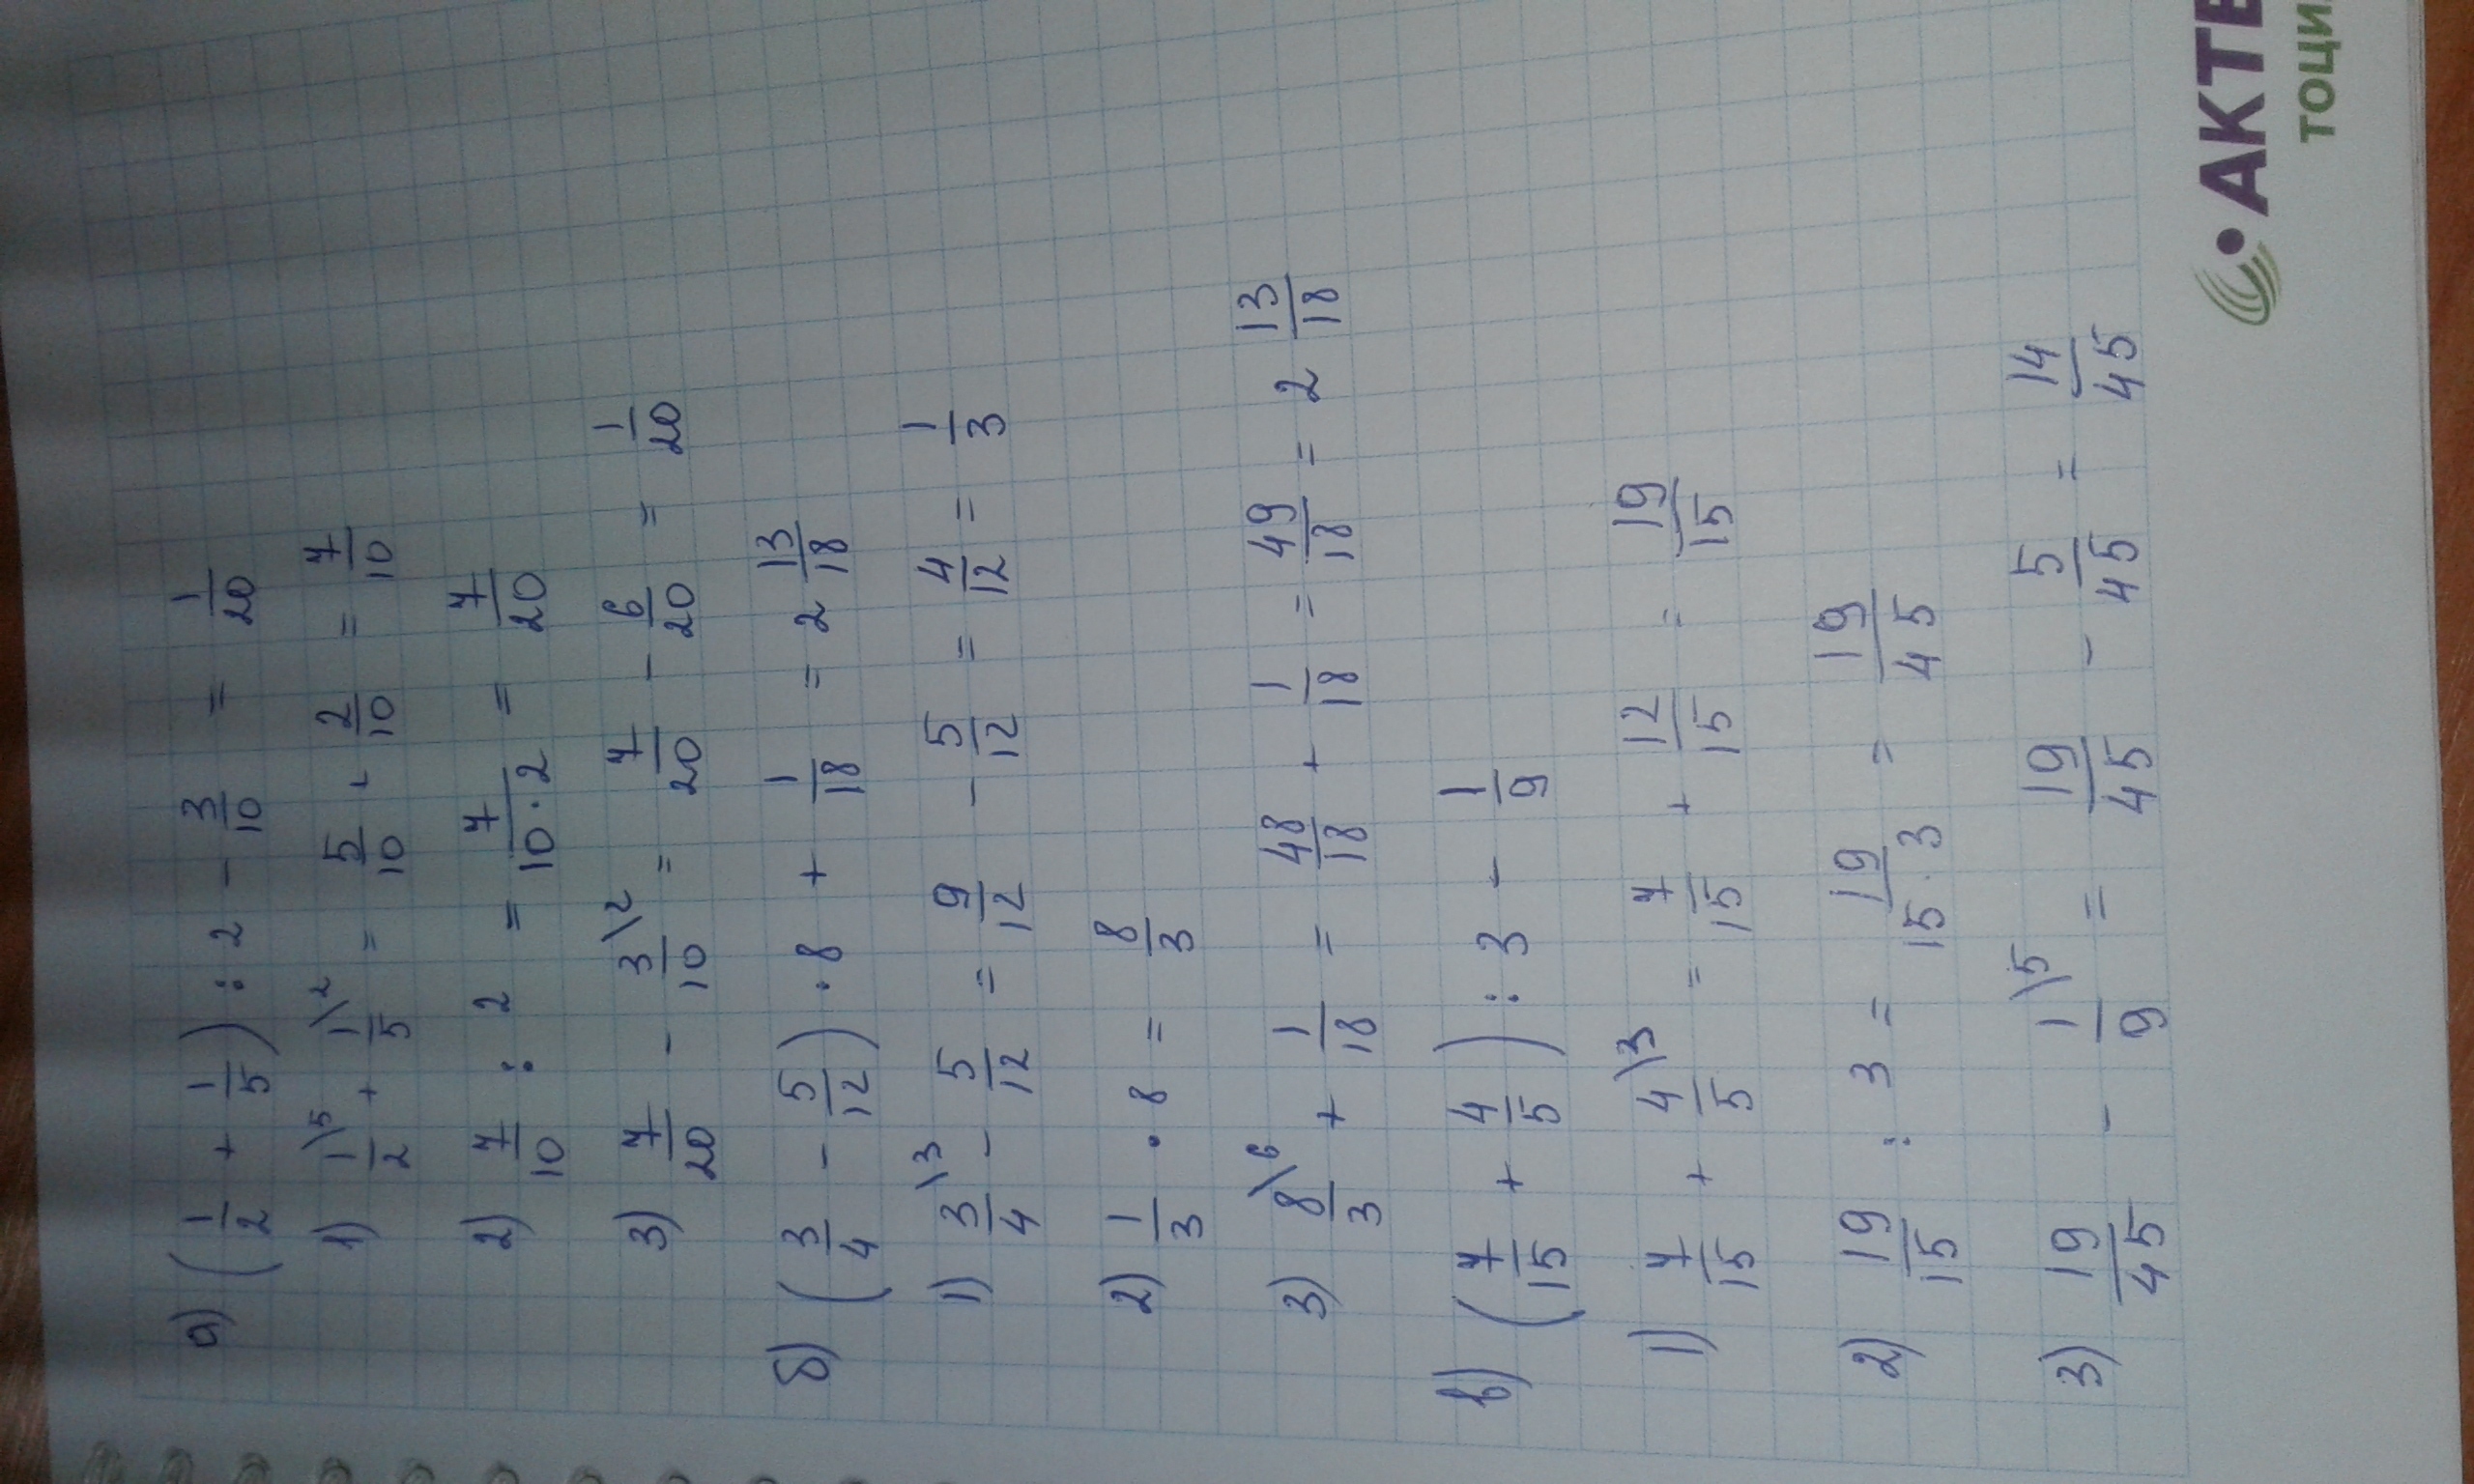 а) (1/2 + 1/5) : 2 - 3/10 = 1/20
1) 1\5/2 + 1\2/5 = 5/10 + 2/10 = 7/10
2) 7/10 : 2 = 7/10·2 = 7/20
3) 7/20 - 3\2/10 = 7/20 - 6/20 = 1/20
б) (3/4 - 5/12) · 8 + 1/18 = 2 13/18
1) 3\3/4 - 5/12 = 9/12 - 5/12 = 4/12 = 1/3
2) 1/3 · 8 = 8/3
3) 8\6/3 + 1/18 = 48/18 + 1/18 = 49/18 = 2 13/18
в) (7/15 + 4/5) : 3 - 1/9
1) 7/15 + 4\3/5 = 7/15 + 12/15 = 19/15
2) 19/15 : 3 = 19/15·3 = 19/45
3) 19/45 - 1\5/9 = 19/45 - 5/45 = 14/45